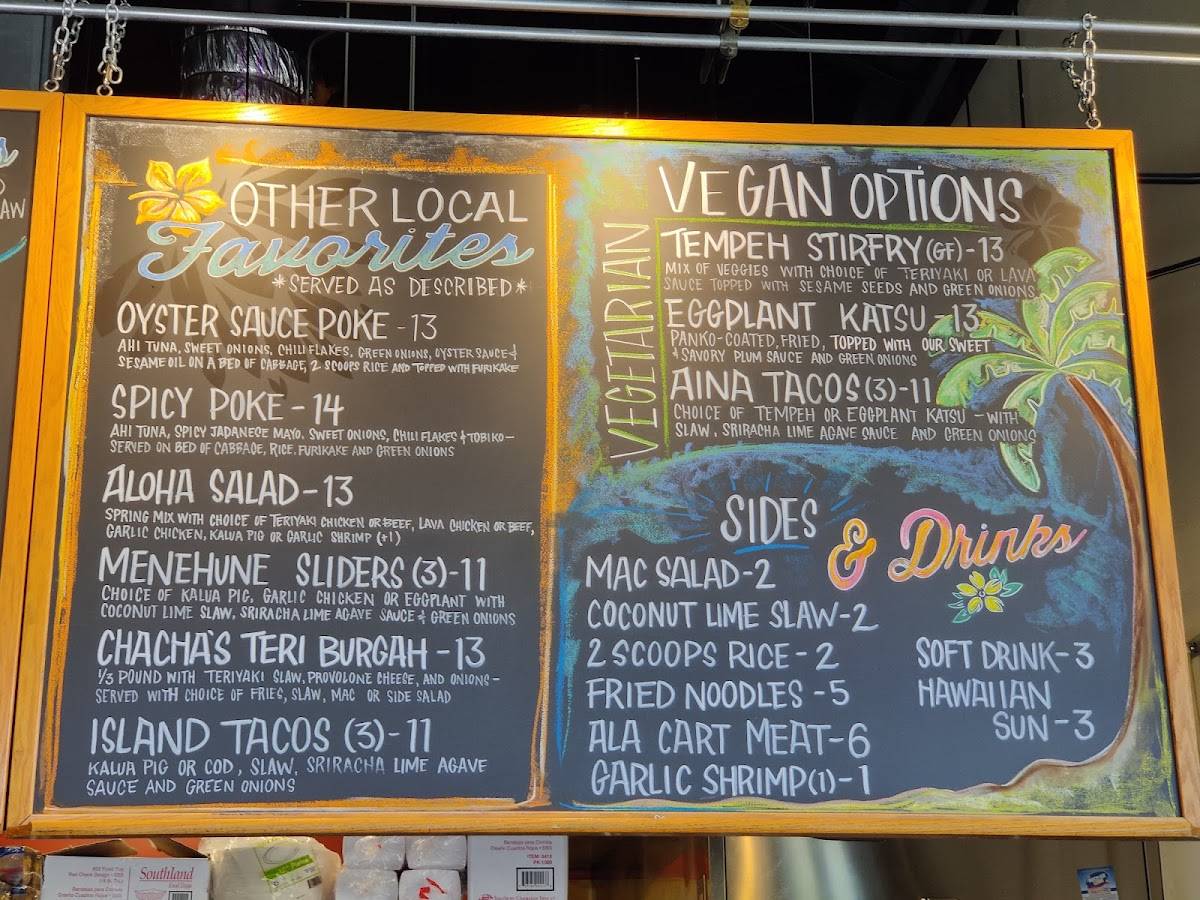 AW
OTHER LOCAL
Favorites
*SERVED AS DESCRIBED*
OYSTER SAUCE POKE - 13
AHI TUNA, SWEET ONIONS, CHILI FLAKES, GREEN ONIONS, OYSTER SAUCE &
SESAME OIL ON A BED OF CABBAGE, 2 SCOOPS RICE AND TOPPED WITH FURIKAKE
SPICY POKE - 14
AHI TUNA, SPICY JAPANESE MAYO. SWEET ONIONS, CHILI FLAKES & TOBIKO -
SERVED ON BED OF CABBAGE, RICE, FURIKAKE AND GREEN ONIONS
ALOHA SALAD - 13
SPRING MIX WITH CHOICE OF TERIYAKI CHICKEN OR BEEF, LAVA CHICKEN OR BEEF,
GARLIC CHICKEN, KALUA PIG OR GARLIC SHRIMP (+1)
MENEHUNE SLIDERS (3) - 11
CHOICE OF KALUA PIG, GARLIC CHICKEN OR EGGPLANT WITH
COCONUT LIME SLAW, SRIRACHA LIME AGAVE SAUCE & GREEN ONIONS
CHACHA'S TERI BURGAH - 13
1/3 POUND WITH TERIYAKI SLAW, PROVOLONE CHEESE, AND ONIONS -
SERVED WITH CHOICE OF FRIES, SLAW, MAC OR SIDE SALAD
ISLAND TACOS (3) - 11
KALUA PIG OR COD, SLAW, SRIRACHA LIME AGAVE
SAUCE AND GREEN ONIONS
VEGETARIAN
VEGAN OPTIONS
TEMPEH STIRFRY (GF) - 13
MIX OF VEGGIES WITH CHOICE OF TERIYAKI OR LAVA
SAUCE TOPPED WITH SESAME SEEDS AND GREEN ONIONS
EGGPLANT KATSU - 13
PANKO-COATED, FRIED, TOPPED WITH OUR SWEET
& SAVORY PLUM SAUCE AND GREEN ONIONS
AINA TACOS (3) - 11
CHOICE OF TEMPEH OR EGGPLANT KATSU - WITH
SLAW, SRIRACHA LIME AGAVE SAUCE AND GREEN ONIONS
SIDES
& Drinks
MAC SALAD - 2
COCONUT LIME SLAW - 2
2 SCOOPS RICE - 2
FRIED NOODLES - 5
ALA CART MEAT - 6
GARLIC SHRIMP (1) - 1
SOFT DRINK - 3
HAWAIIAN
SUN - 3
Southland